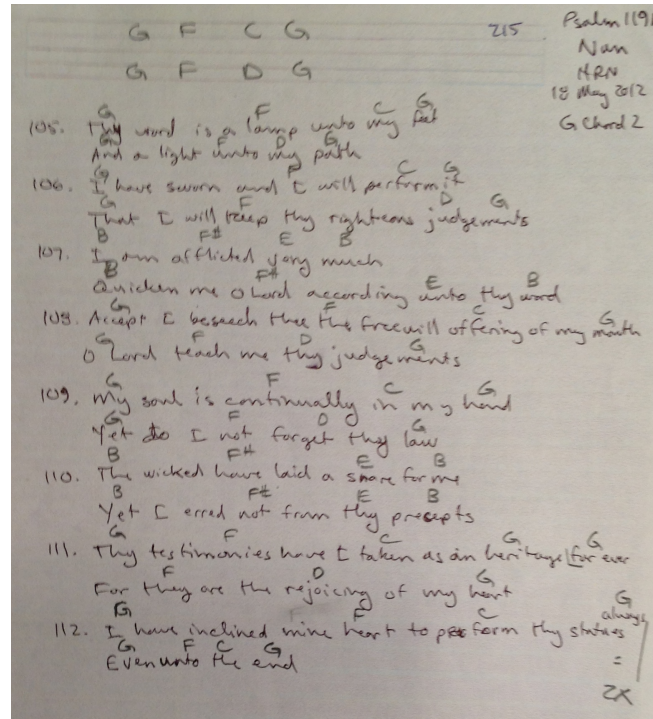 G F C G 215 Psalm 119
Nun
G F D G HRN
18 May 2012
G Chord 2
G F C G
105. Thy word is a lamp unto my feet
G F D G
And a light unto my path
G F C G
106. I have sworn and I will perform it
G F D G
That I will keep thy righteous judgements
B F# E B
107. I am afflicted very much
B F# E B
Quicken me o Lord according unto thy word
G F C G
108. Accept I beseech thee the freewill offering of my mouth
G F D G
O Lord teach me thy judgements
G F C G
109. My soul is continually in my hand
G F D G
Yet do I not forget thy law
B F# E B
110. The wicked have laid a snare for me
B F# E B
Yet I erred not from thy precepts
G F C G G
111. Thy testimonies have I taken as an heritage for ever
F D G
For they are the rejoicing of my heart
G F C G
always
112. I have inclined mine heart to perform thy statues
G F C G
Even unto the end
=
2x